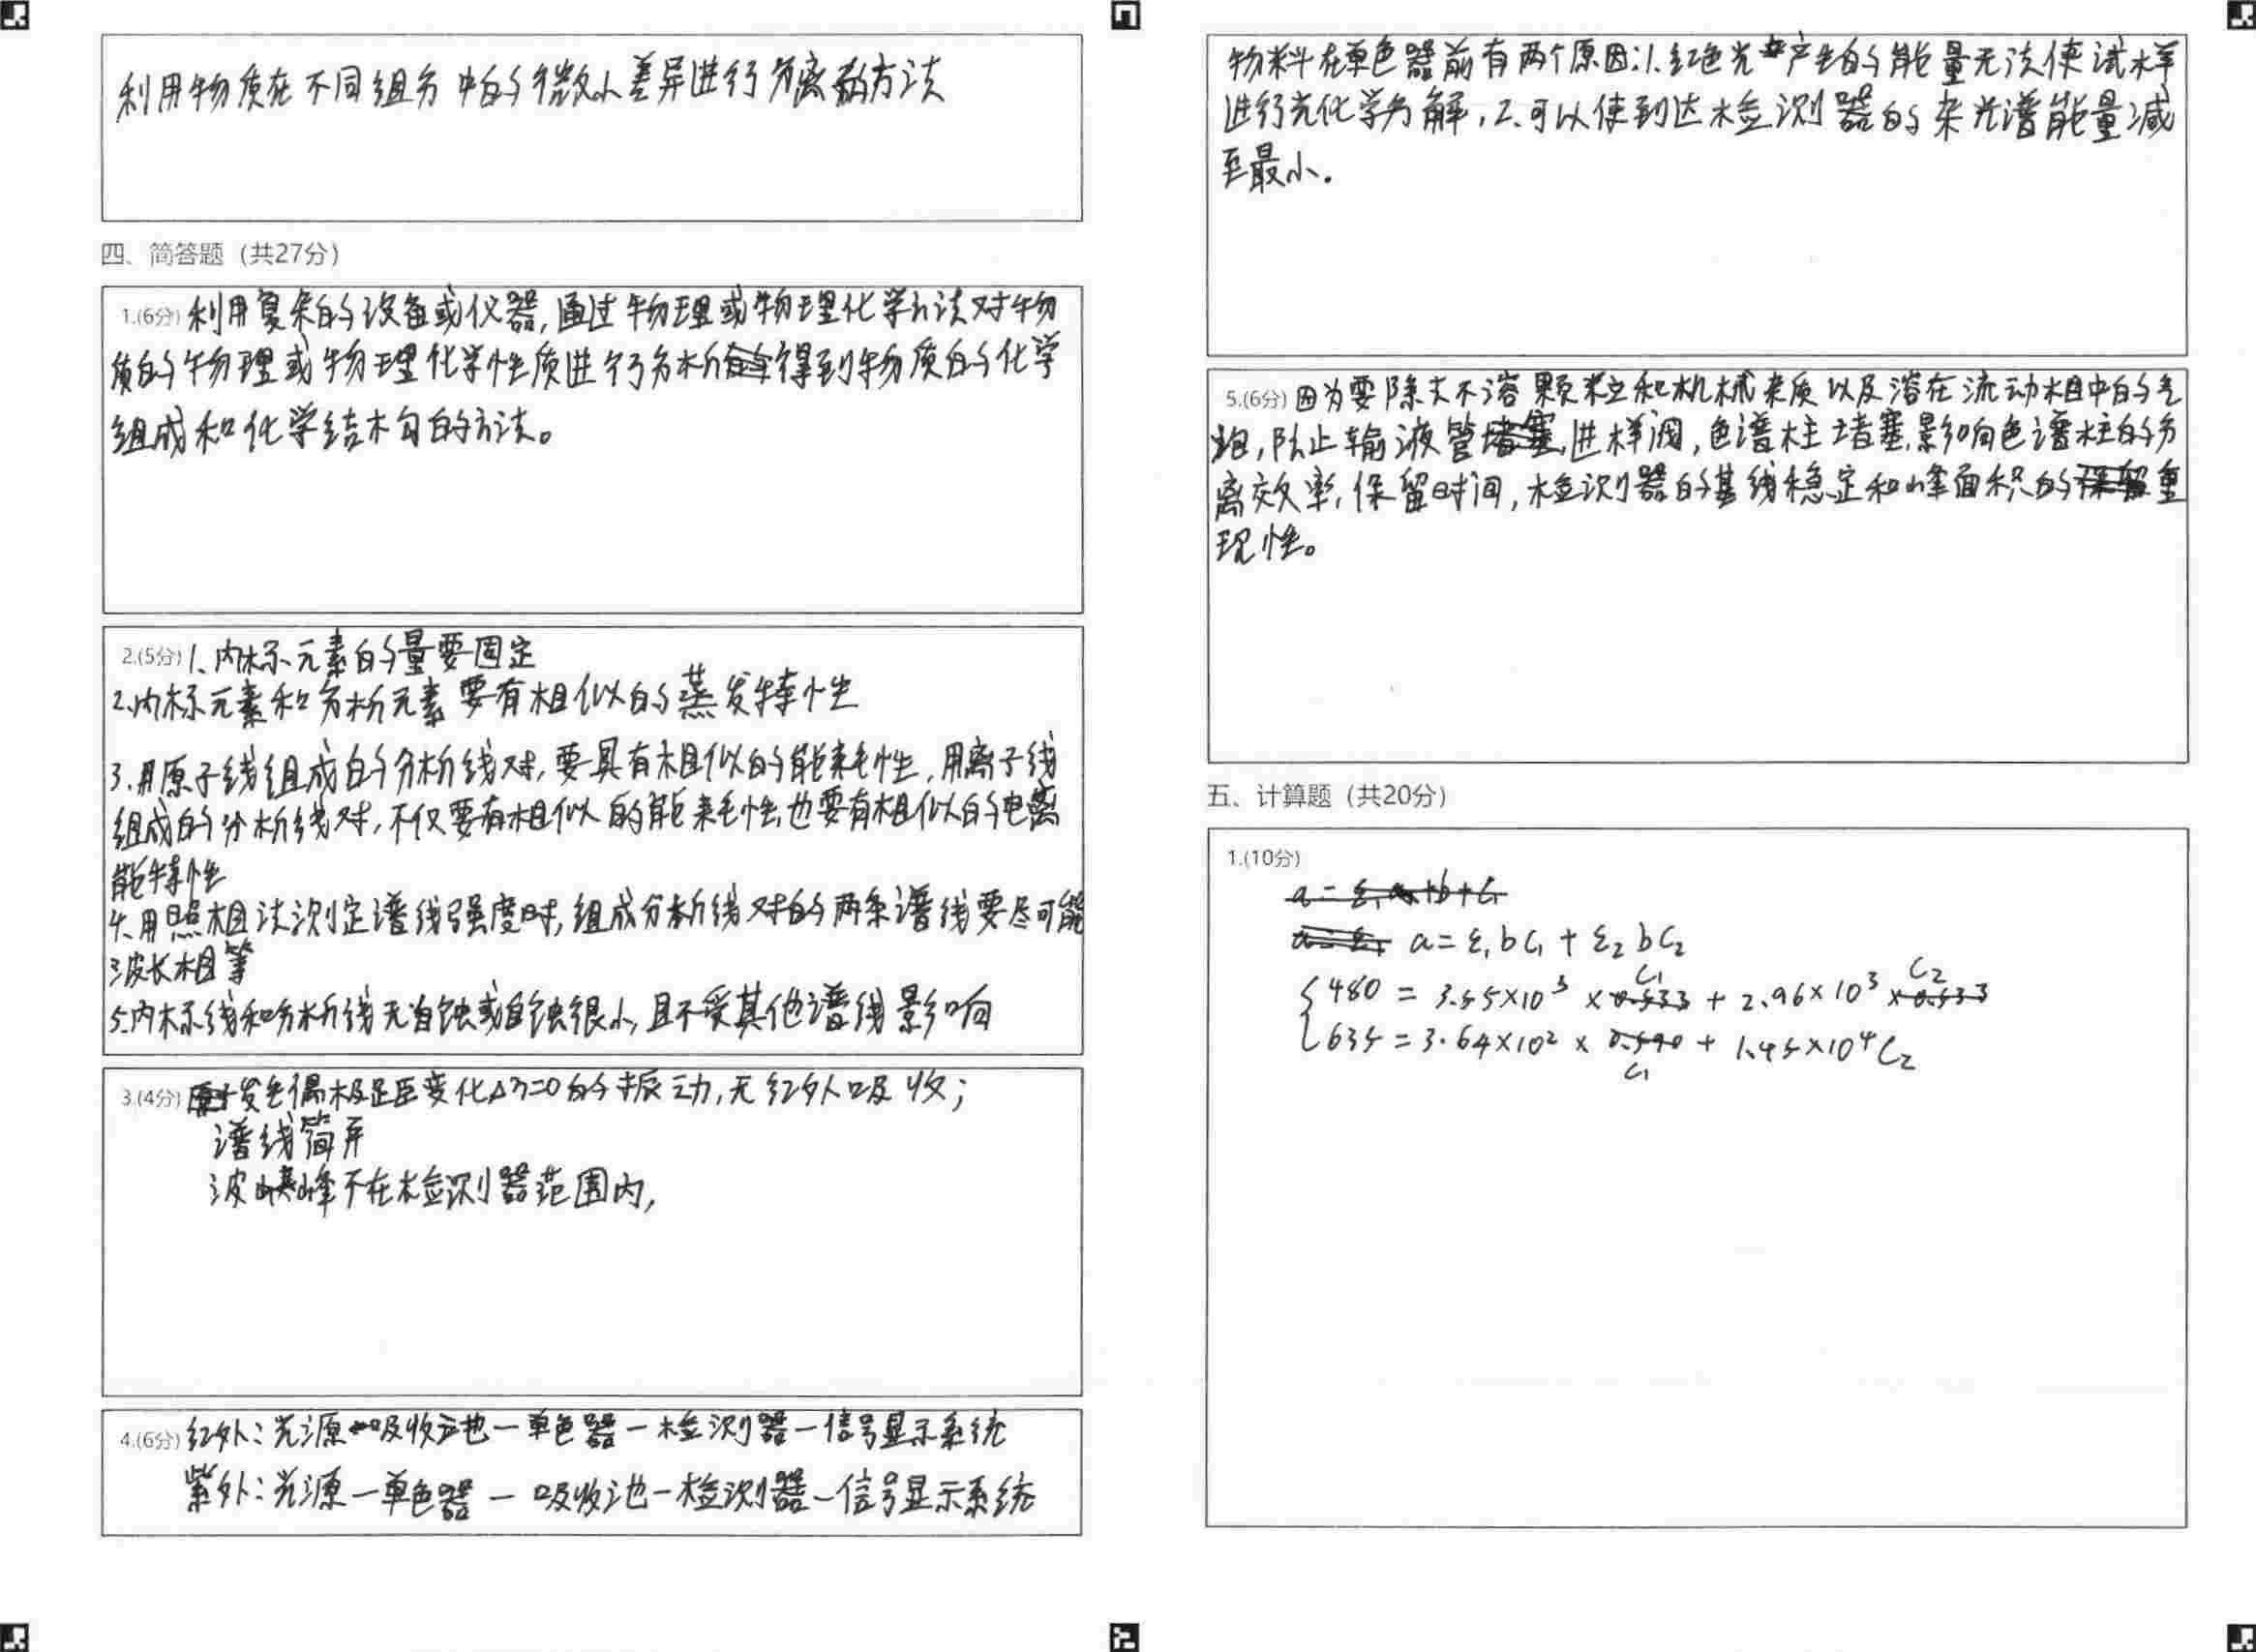 利用物质在不同组分中的微小差异进行分离的方法
四、简答题（共27分）
1.(6分) 利用复杂的设备或仪器,通过物理或物理化学方法对物
质的物理或物理化学性质进行分析得到物质的化学
组成和化学结构的方法。
2.(5分) 1、内标元素的量要固定
2、内标元素和分析元素要有相似的蒸发特性
3.用原子线组成的分析线对,要具有相似的能耗性,用离子线
组成的分析线对,不仅要有相似的能耗性,也要有相似的电离
能特性
4、用照相法测定谱线强度时,组成分析线对的两条谱线要尽可能
波长相等
5.内标线和分析线无自蚀或自蚀很小,且不受其他谱线影响
3.(4分) 发生偶极距变化Δη=0的振动,无红外吸收;
谱线简并
波峰不在检测器范围内,
4.(6分) 红外:光源—吸收池—单色器—检测器—信号显示系统
紫外:光源—单色器—吸收池—检测器—信号显示系统
物料在单色器前有两个原因:1.红色光产生的能量无法使试样
进行光化学分解,2.可以使到达检测器的杂光谱能量减
至最小.
5.(6分) 因为要除去不溶颗粒和机械杂质以及溶在流动相中的气
泡,防止输液管,进样阀,色谱柱堵塞,影响色谱柱的分
离效率,保留时间,检测器的基线稳定和峰面积的重
现性。
五、计算题（共20分）
1.(10分)
a=ε₁bc₁+ε₂bc₂
480=3.55×10³×c₁+2.96×10³c₂
635=3.64×10²×c₁+1.45×10⁴c₂